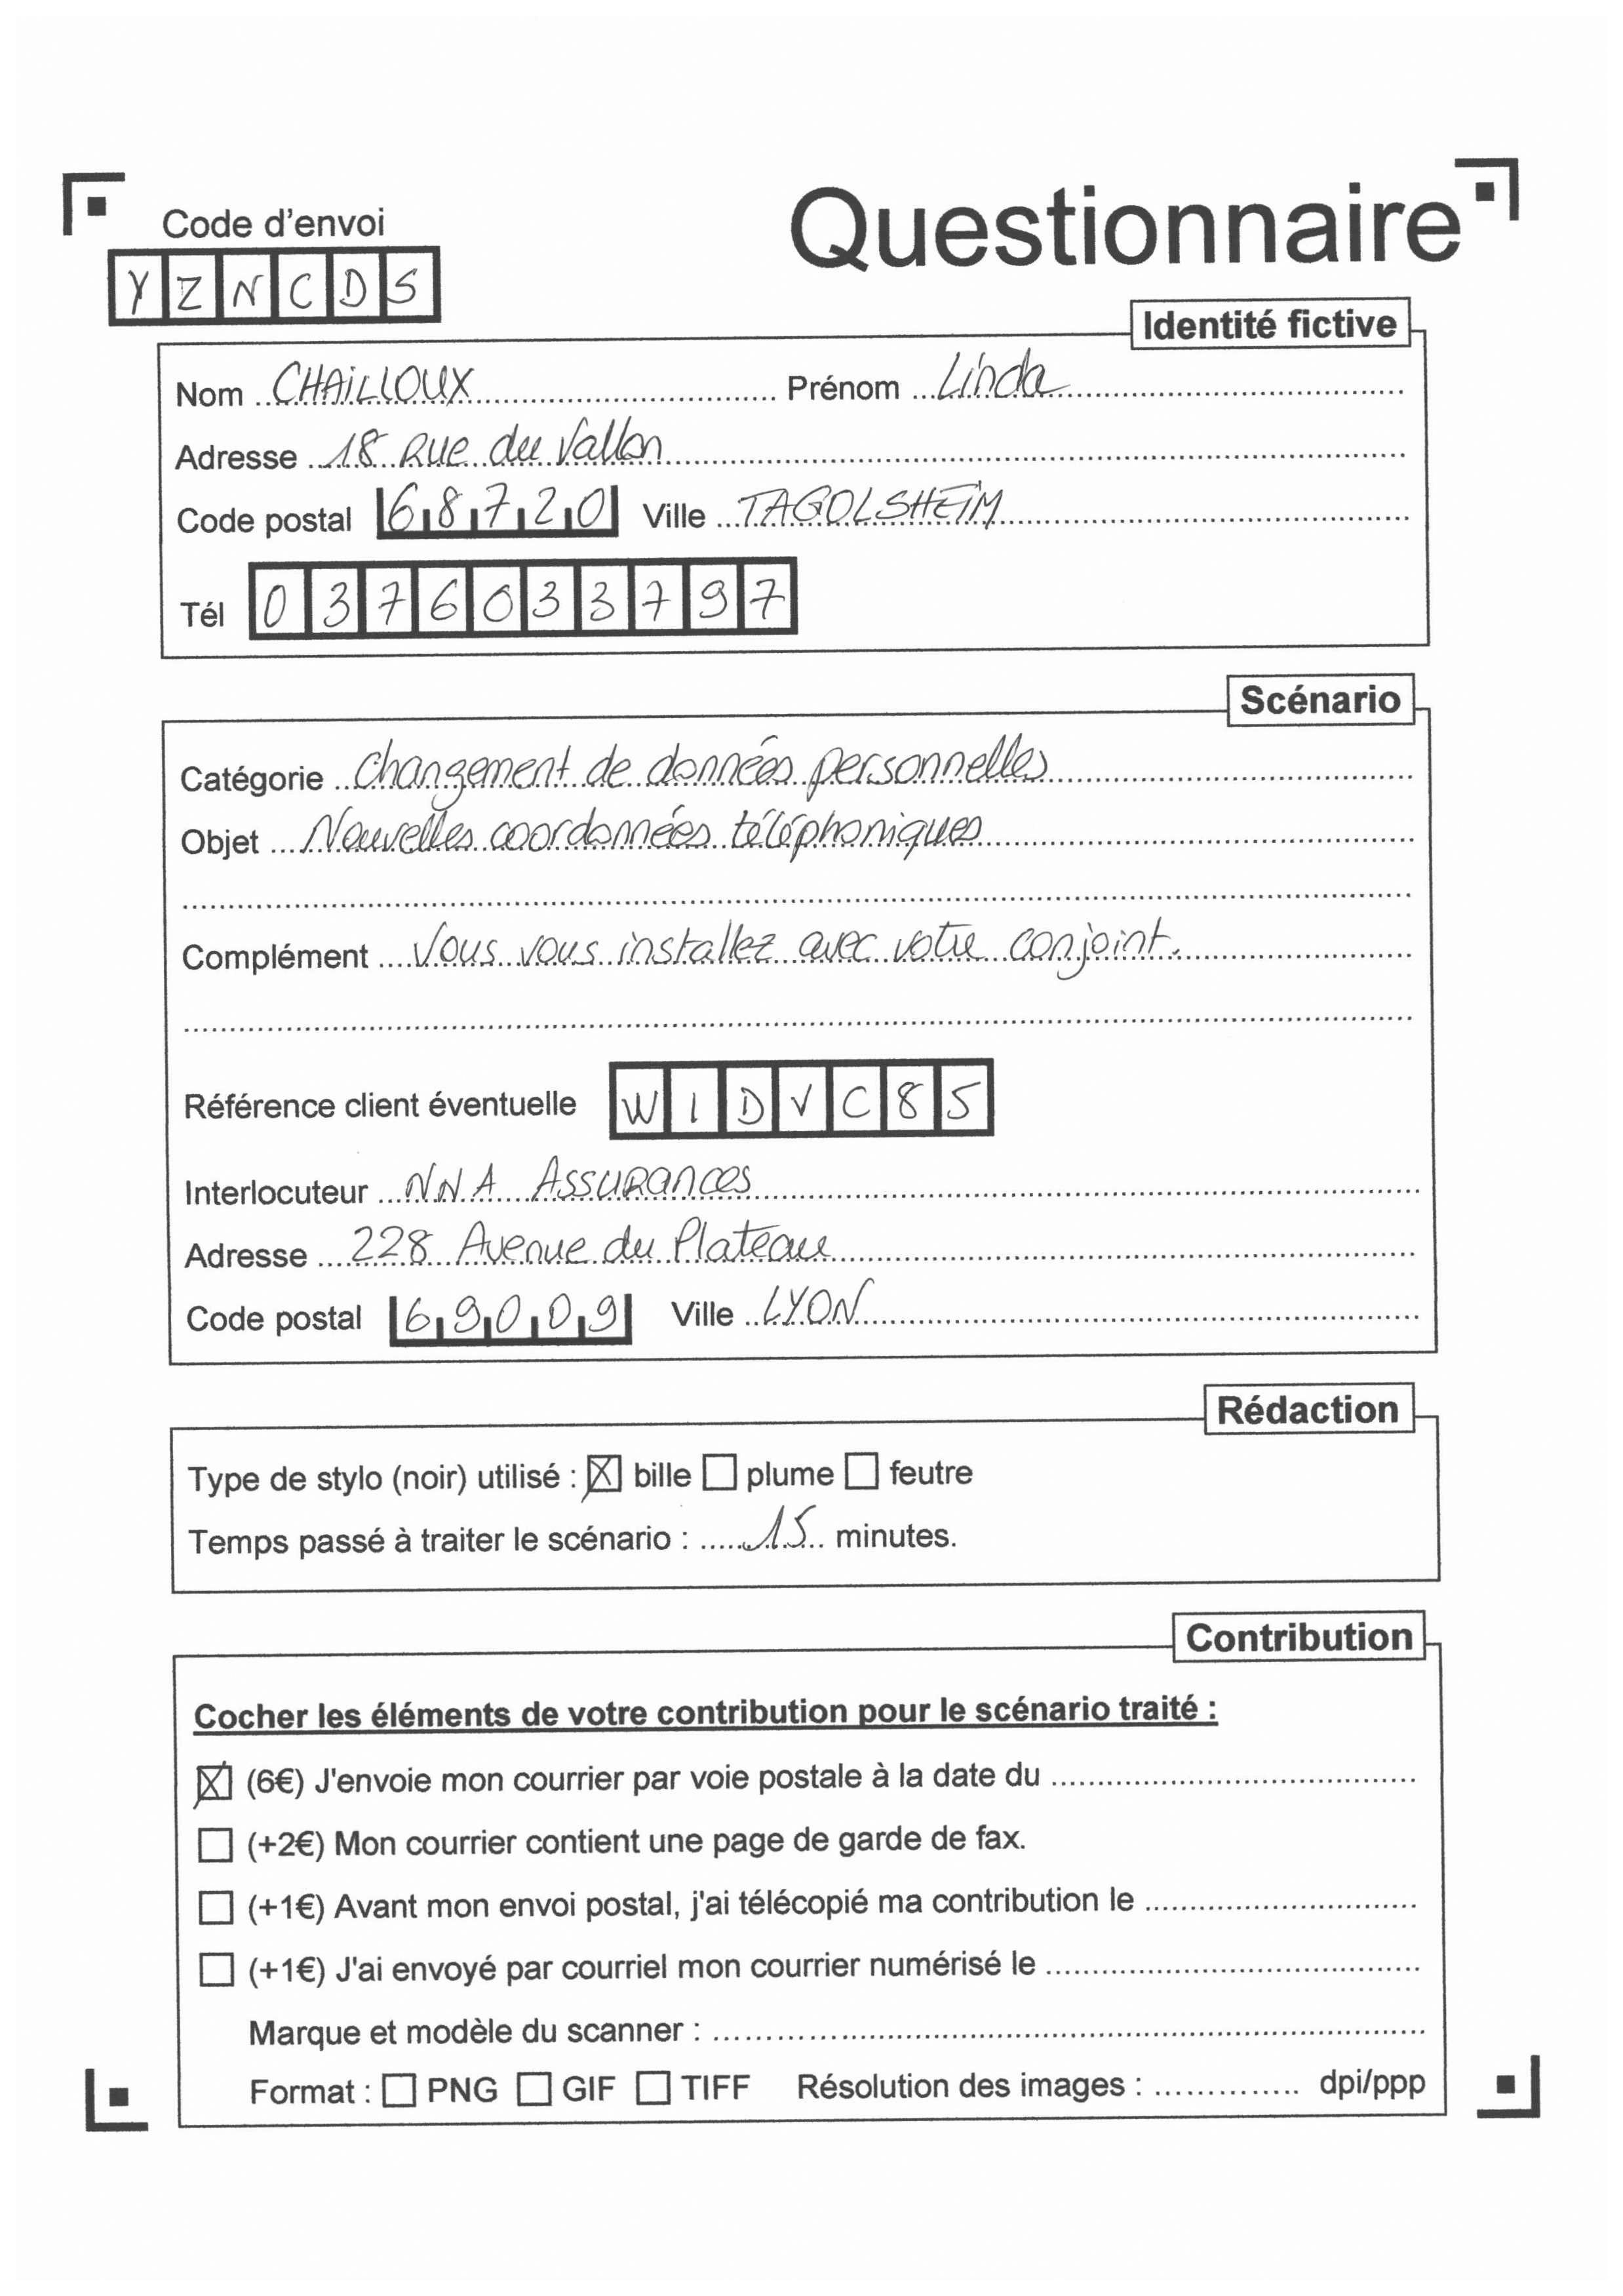 Code d'envoi
Questionnaire
YZNCDS
Identité fictive
Nom CHAILLOUX Prénom Linda
Adresse 18 Rue du Vallon
Code postal 68720 Ville TAGOLSHEIM
Tél 0376033797
Scénario
Catégorie Changement de données personnelles
Objet Nouvelles coordonnées téléphoniques
Complément Vous vous installez avec votre conjoint.
Référence client éventuelle WIDVC85
Interlocuteur NNA Assurances
Adresse 228 Avenue du Plateau
Code postal 69009 Ville LYON
Rédaction
Type de stylo (noir) utilisé : ☒ bille ☐ plume ☐ feutre
Temps passé à traiter le scénario : 15 minutes.
Contribution
Cocher les éléments de votre contribution pour le scénario traité :
☒ (6€) J'envoie mon courrier par voie postale à la date du
☐ (+2€) Mon courrier contient une page de garde de fax.
☐ (+1€) Avant mon envoi postal, j'ai télécopié ma contribution le
☐ (+1€) J'ai envoyé par courriel mon courrier numérisé le
Marque et modèle du scanner :
Format : ☐ PNG ☐ GIF ☐ TIFF Résolution des images : dpi/ppp